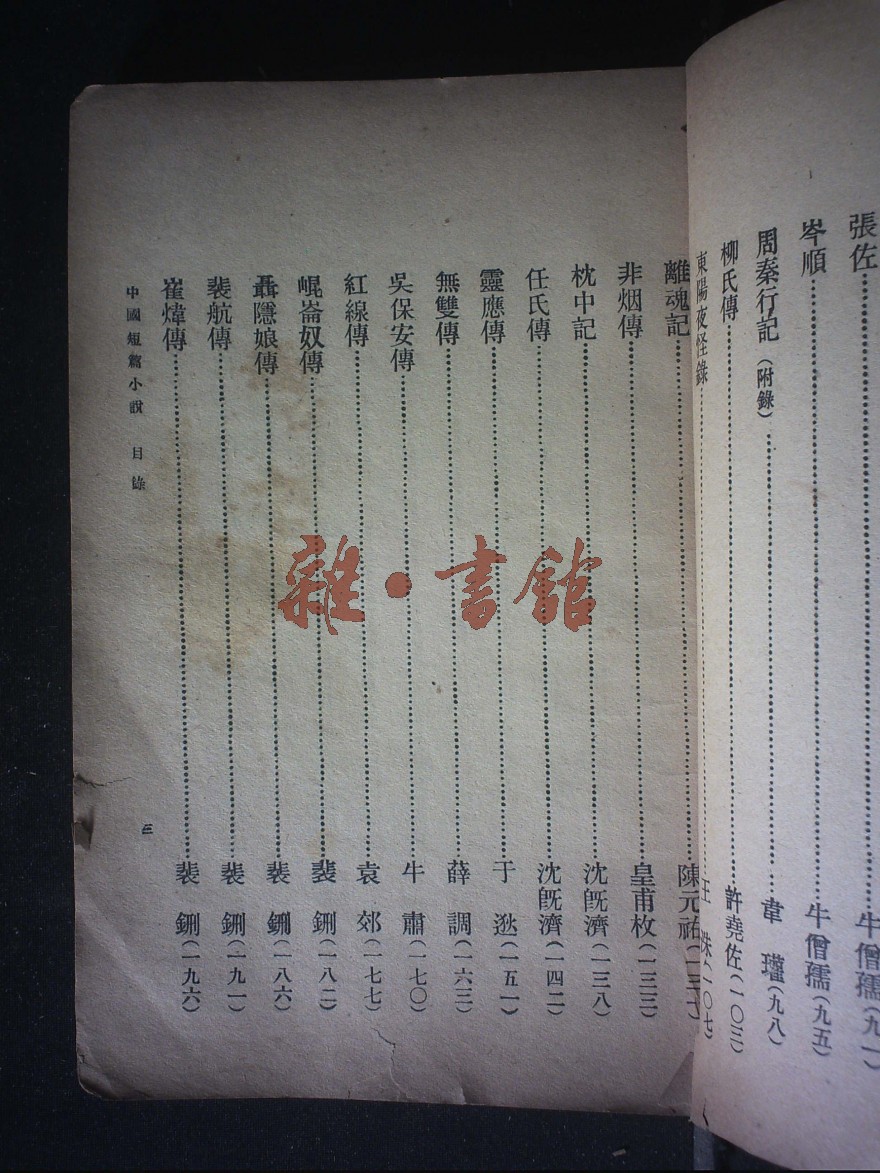 張佐……牛僧孺(九一)
岑順……牛僧孺(九五)
周秦行記(附錄)……韋瓘(九八)
柳氏傳……許堯佐(一〇三)
東陽夜怪錄……王洙(一〇七)
離魂記……陳元祐
非烟傳……皇甫枚(一三三)
枕中記……沈旣濟(一三八)
任氏傳……沈旣濟(一四二)
靈應傳……于逖(一五一)
無雙傳……薛調(一六三)
吳保安傳……牛肅(一七〇)
紅線傳……袁郊(一七七)
崐崙奴傳……裴鉶(一八二)
聶隱娘傳……裴鉶(一八六)
裴航傳……裴鉶(一九一)
崔煒傳……裴鉶(一九六)
中國短篇小說 目錄
三
雜·書館